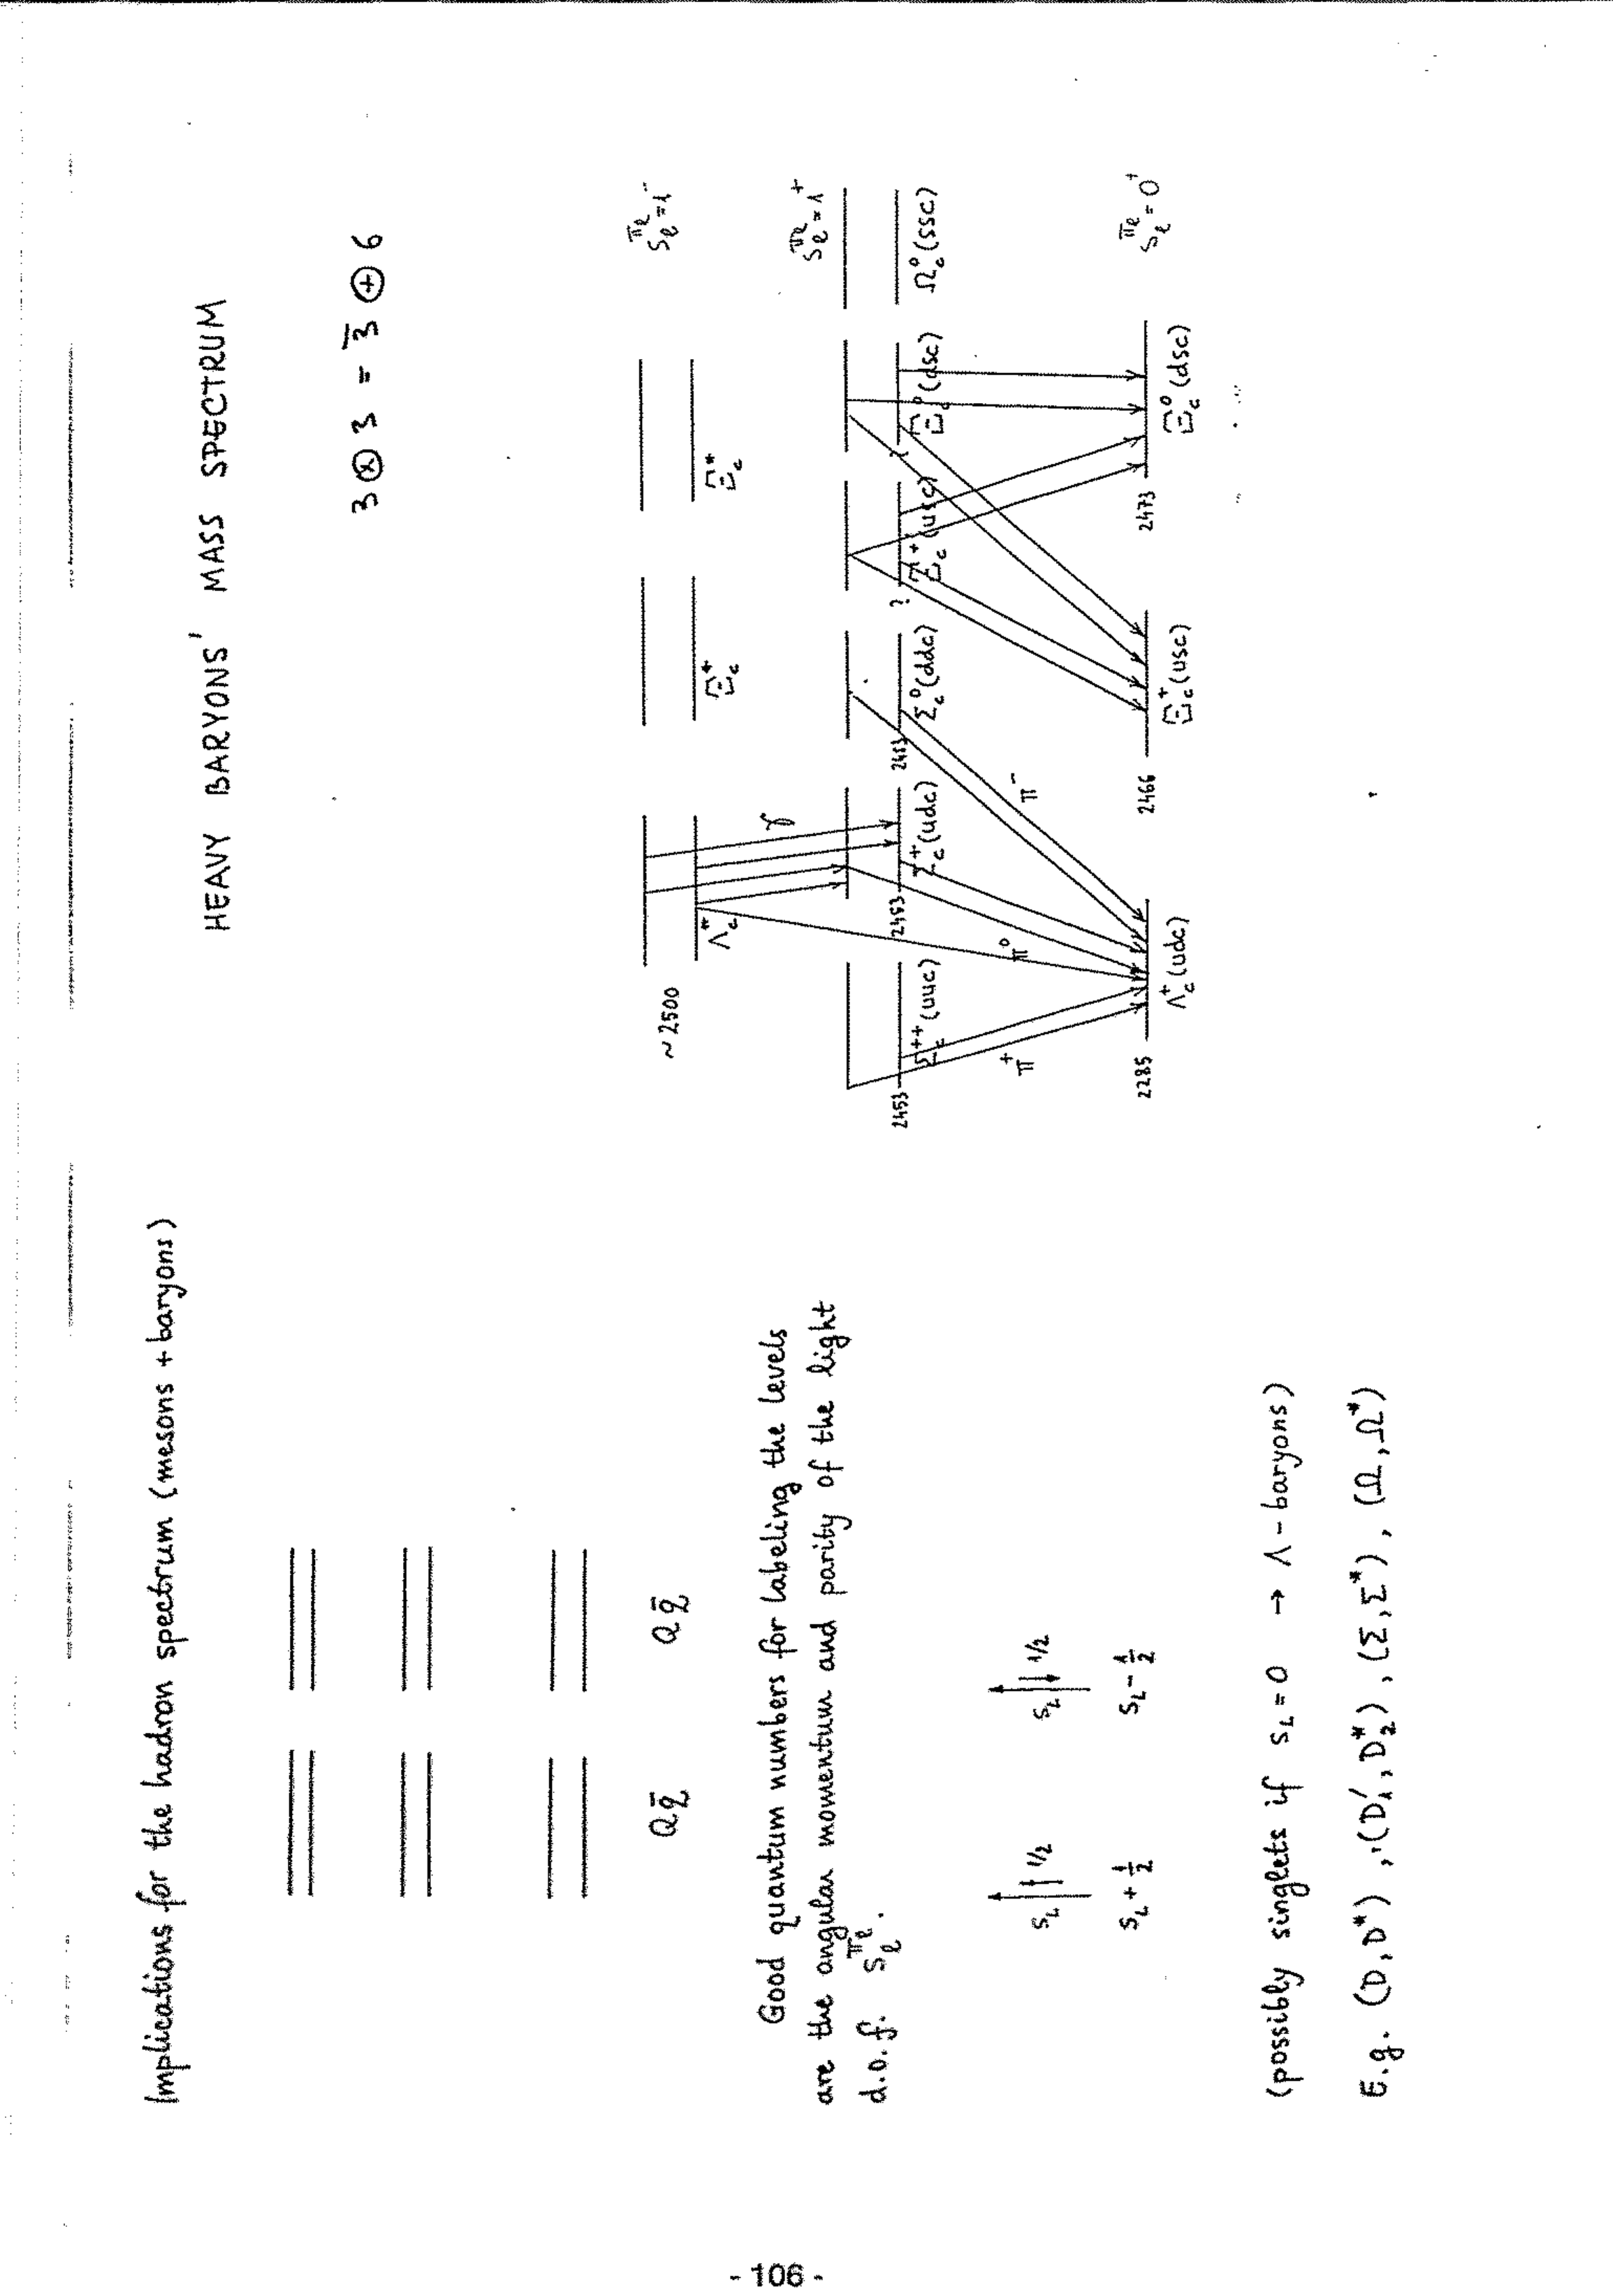 Implications for the hadron spectrum (mesons + baryons)
Qq̄ Qq̄
Good quantum numbers for labeling the levels
are the angular momentum and parity of the light
d.o.f. S_ℓ^{π_ℓ}.
S_L 1/2 S_L 1/2
S_L + 1/2 S_L - 1/2
(possibly singlets if S_L = 0 → Λ - baryons)
E.g. (D, D*), (D_1', D_2*), (Σ, Σ*), (Ω, Ω*)
HEAVY BARYONS' MASS SPECTRUM
3 ⊗ 3 = 3̄ ⊕ 6
S_ℓ^{π_ℓ} = 1^-
~ 2500
Λ_c^+ Ξ_c^+ Ξ_c^*
γ
S_ℓ^{π_ℓ} = 1^+
2453 2453 2453 ? ?
Σ_c^{++} (uuc) Σ_c^+ (udc) Σ_c^0 (ddc) Ξ_c^+ (usc) Ξ_c^0 (dsc) Ω_c^0 (ssc)
π^+ π^0 π^-
S_ℓ^{π_ℓ} = 0^+
2285 2466 2473
Λ_c^+ (udc) Ξ_c^+ (usc) Ξ_c^0 (dsc)
- 106 -